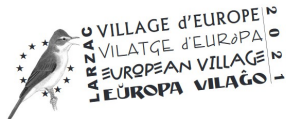 LARZAC
VILLAGE d'EUROPE
VILATGE d'EURÒPA
EUROPEAN VILLAGE
EŬROPA VILAĜO
2021